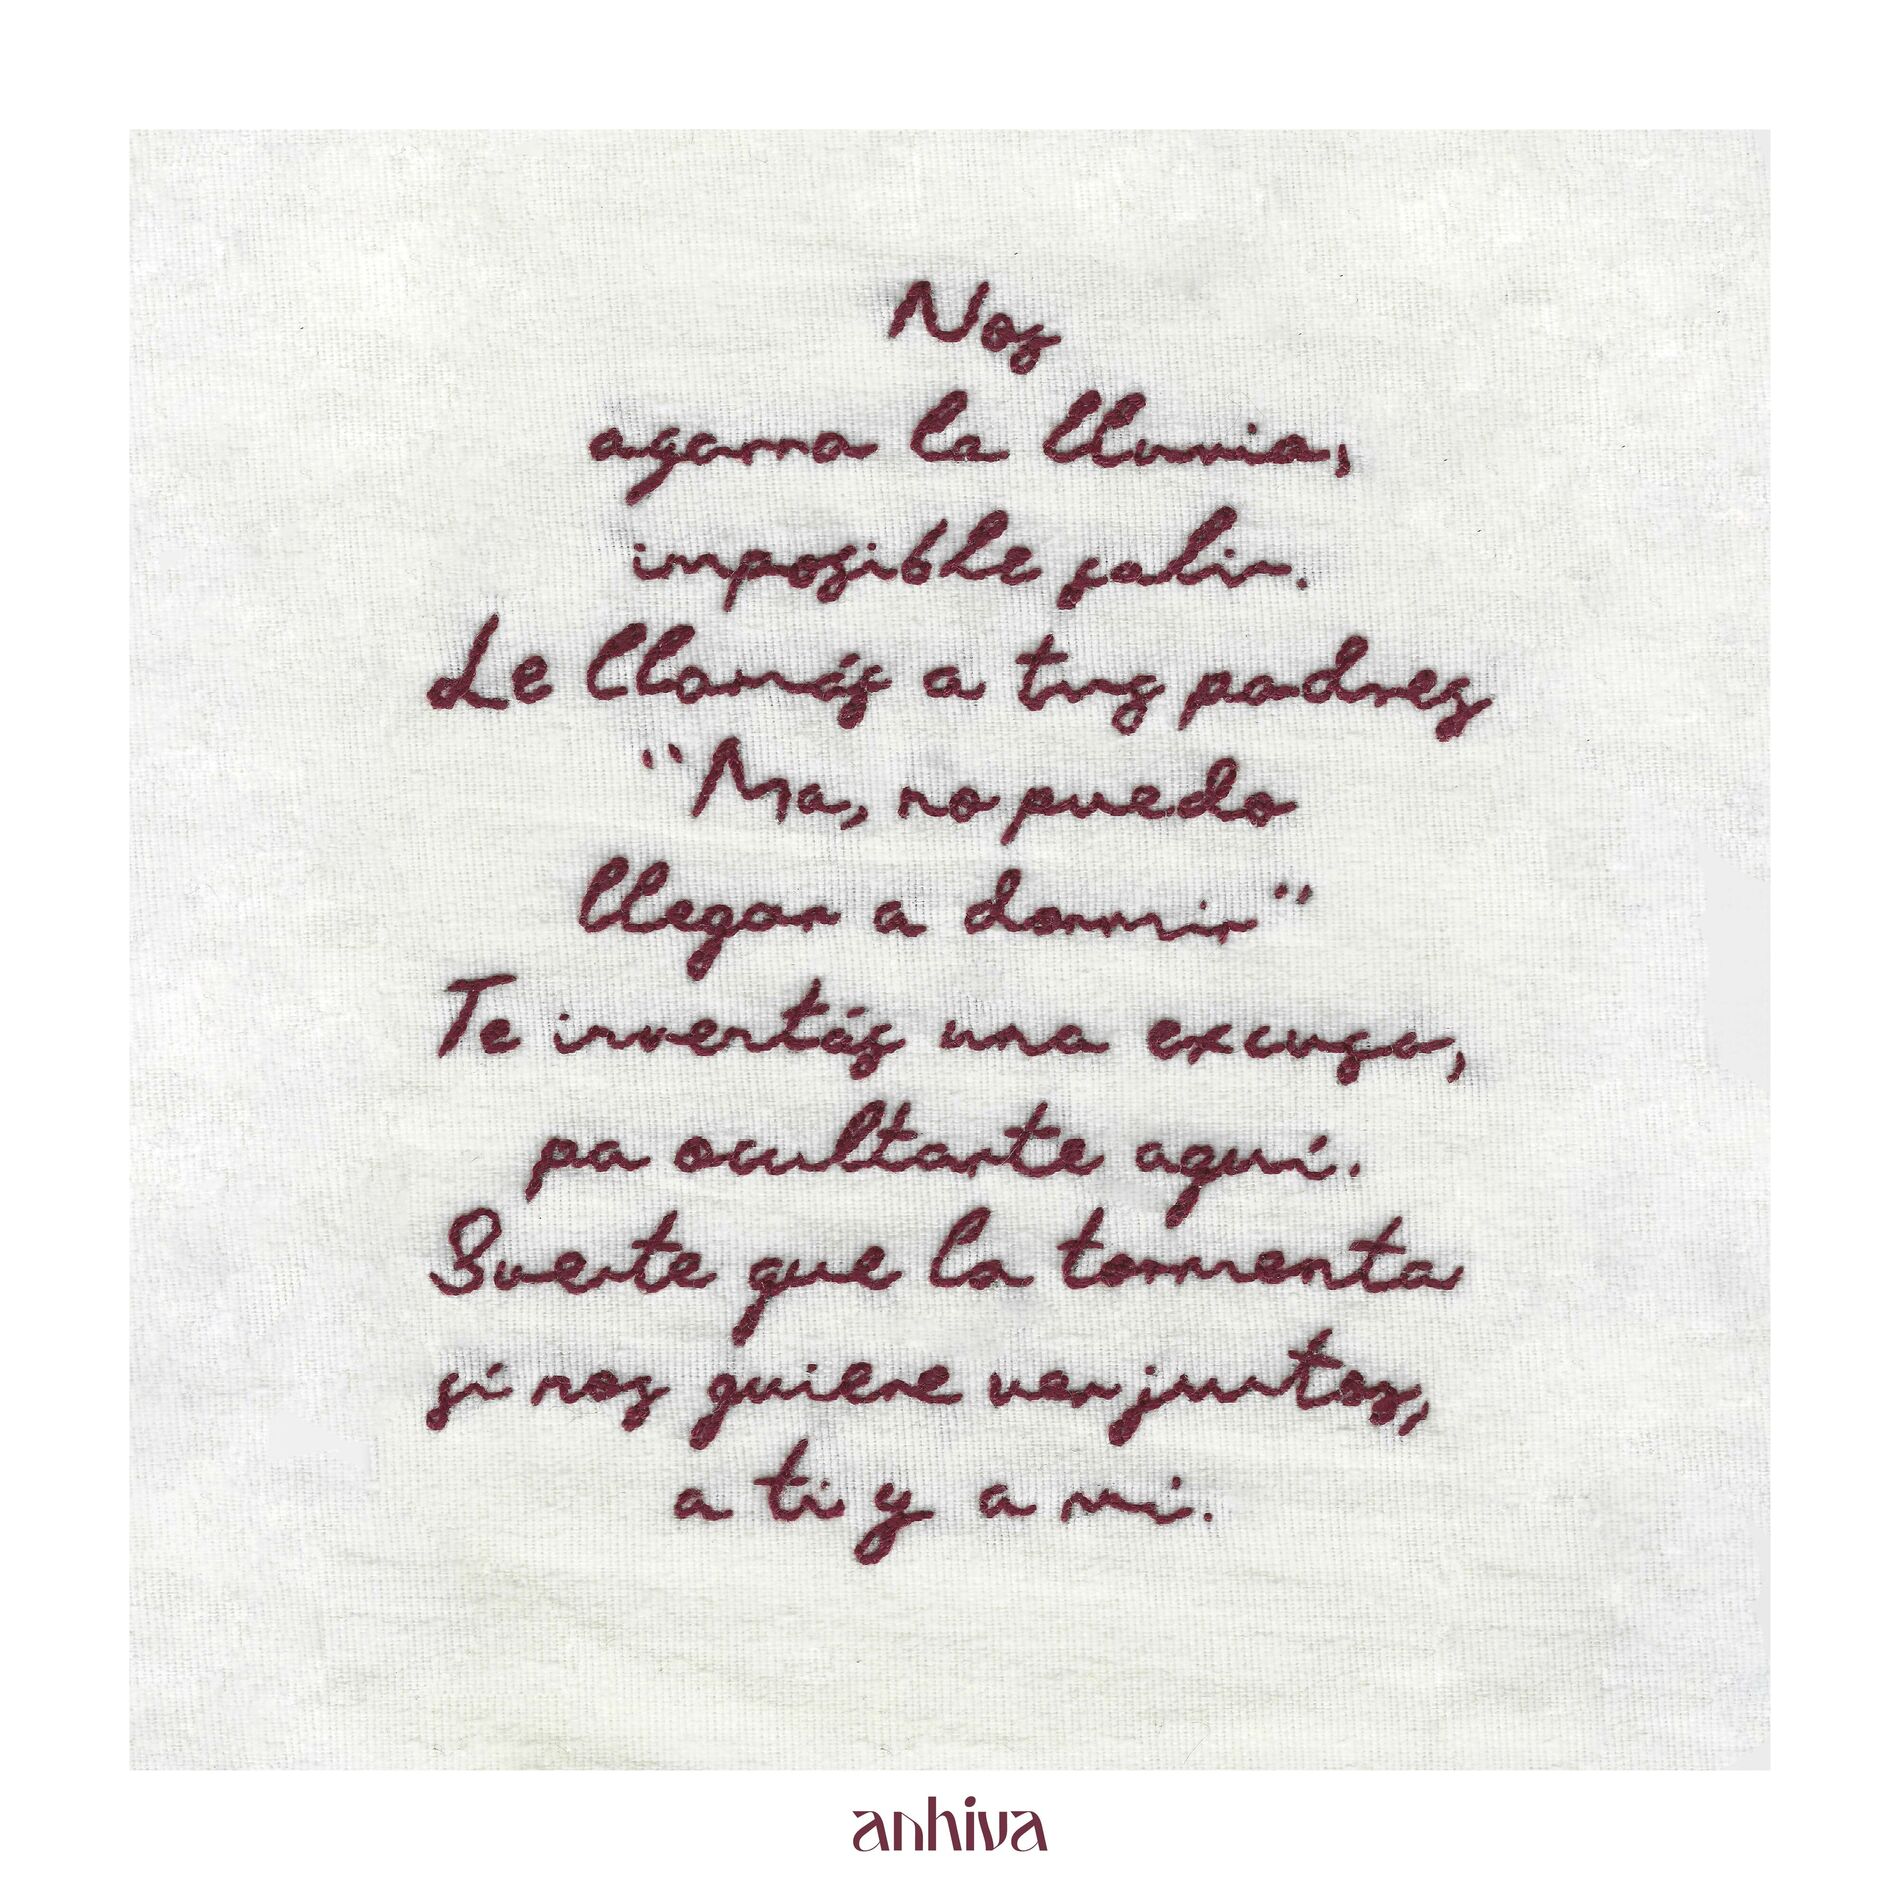 Nos
agarra la lluvia,
imposible salir.
Le llamás a tus padres
"Ma, no puedo
llegar a dormir"
Te inventás una excusa,
pa ocultarte aquí.
Suerte que la tormenta
sí nos quiere ver juntos,
a ti y a mí.
anhiva